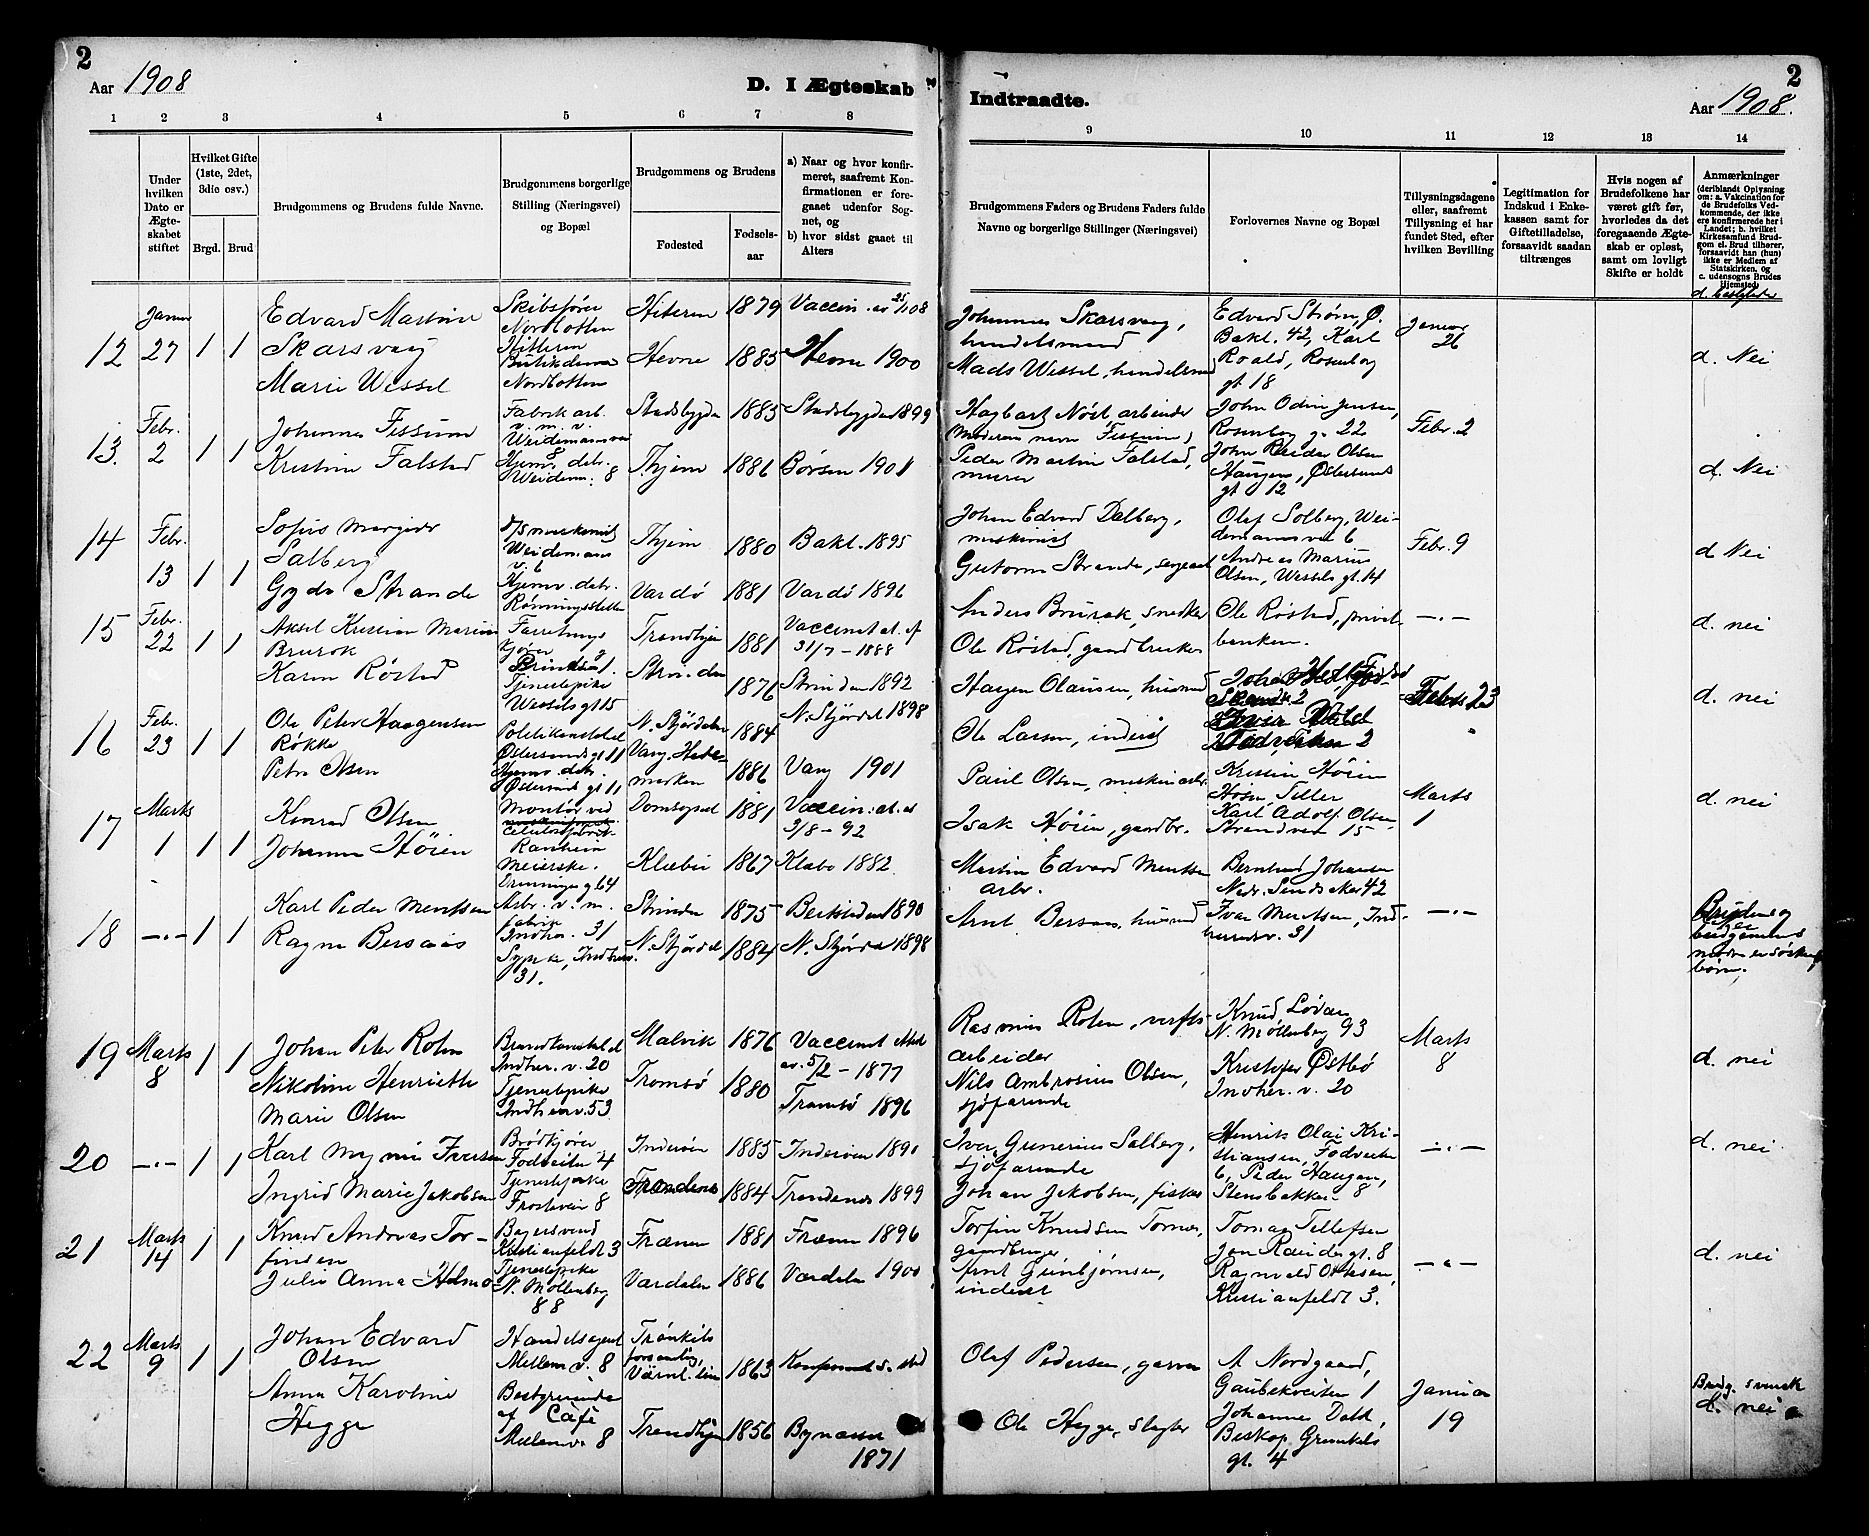 2
Aar 1908
D. I Ægteskab
Indtraadte.
2
Aar 1908.
1 2 3 4 5 6 7 8
9 10 11 12 13 14
Under hvilken Dato er Ægteskabet stiftet
Hvilket Gifte (1ste, 2det, 3die osv.)
Brgd. Brud
Brudgommens og Brudens fulde Navne.
Brudgommens borgerlige Stilling (Næringsvei) og Bopæl
Brudgommens og Brudens
Fødested
Fødsels-aar
a) Naar og hvor konfirmeret, saafremt Konfirmationen er foregaaet udenfor Sognet, og
b) hvor sidst gaaet til Alters
Brudgommens Faders og Brudens Faders fulde Navne og borgerlige Stillinger (Næringsvei)
Forlovernes Navne og Bopæl
Tillysningsdagene eller, saafremt Tillysning ei har fundet Sted, efter hvilken Bevilling
Legitimation for Indskud i Enkekassen samt for Giftetilladelse, forsaavidt saadan tiltrænges
Hvis nogen af Brudefolkene har været gift før, hvorledes da det foregaaende Ægteskab er opløst, samt om lovligt Skifte er holdt
Anmærkninger
(deriblandt Oplysning om: a. Vakcination for de Brudefolks Vedkommende, der ikke ere konfirmerede her i Landet; b. hvilket Kirkesamfund Brudgom el. Brud tilhører, forsaavidt han (hun) ikke er Medlem af Statskirken, og c. udensogns Brudes Hjemsted)
12
Januar
27
1 1
Edvard Martin
Skarsvaag
Marie Wessel
Skibsfører
Nordbotten
Hitteren
Nordbotten
Hiteren 1879
Hevne 1885
Vaccin. av 25/1 08
Hevne 1900
Johannes Skarsvaag,
handelsmand
Mads Wessel, handelsmand
Edvard Strøm, Ø.
Bakl. 42, Karl
Roald, Rosenborg
gt 18
Januar
26
d. Nei
13.
Febr.
2
1 1
Johannes Fissum
Kristine Falstad
Fabrik arb.
v. m. v.
Weidemannsvei
8
Hjemv. detr.
Weidem. 8
Stadsbygden 1883
Thjem 1886
Stadsbygden 1899
Børsen 1901
Hagbart Nøst, arbeider
Moderens navn Fissum
Peder Martin Falstad,
murer
John Odin Jensen,
Rosenborg g. 22
John Reidar Olsen
Haugen, Østersunds
gt 12
Febr. 2
d. Nei
14
Febr.
13
1 1
Sofus Margido
Salberg
Gyda Strande
D/S maskinist
Weidemanns
v. 6
Hjemv. detr.
Rønningsletten
Thjem 1880
Vardø 1881
Bakl. 1895
Vardø 1896
Johan Edvard Dalberg,
maskinist
Gutorm Strande, sergeant
Olaf Solberg, Wei-
demannsvei 6
Andreas Marius
Olsen, Wessels gt. 14
Febr. 9
d Nei
15
Febr.
22
1 1
Aksel Kristian Marius
Brurok
Karen Røstad
Forretnings
kjører
Tjenestepike
Wesselsgt 15
Trondhjem 1881
Strinden 1876
Vaccinat. at. af
31/7 - 1888
Strinden 1892
Anders Brurok, snedker
Ole Røstad, gaardbruker
Ole Røstad, privat-
banken.
— . —
d. nei
16
Febr.
23
1 1
Ole Peter Haagensen
Røkke
Petra Olsen
Politikonstabel
Østersunds gt 11
Hjemv. detr.
Østersunds gt 11
N. Stjørdalen 1884
Vang, Hede-
marken 1886
N. Stjørdal 1898
Vang 1901
Haagen Olausen, husmand
Ole Larsen, inderst
Febr. 23
d. nei
17
Marts
1
1 1
Konrad Olsen
Johanna Høien
Montør ved
Celulosefabrik.
Ranheim
Meierske.
Domsogned 1881
Klæbu 1867
Vaccin. at. av
3/8 - 92
Klæbo 1882
Paul Olsen, maskinarb.
Isak Høien, gaardbr.
Kristian Høien
Hosen, Tiller
Karl Adolf Olsen
Strandvei 15
Marts
1
d. nei
18
— . —
1 1
Karl Peder Mentsen
Ragna Bersaas
Arbr. v. m.
fabrik
Indher. 31
Sypike, Indherr.
31.
Strinden 1875
N. Stjørdal 1884
Baklandet 1890
N. Stjørdal 1898
Martin Edvard Mentsen
arbr.
Arnt Bersaas, husmand
Bernhard Johansen
Nedr. Sindsaker 42
Ivar Mentsen, Ind-
herredsv. 31
— . —
Brudens og
brudgommens
mødre er søsken-
børn.
19
Marts
8
1 1
Johan Peter Rolen
Nikoline Henriette
Marie Olsen
Brandkonstabel
Indher. v. 20
Tjenestepike
Indherrv. 53
Malvik 1876
Tromsø 1880
Vaccinat. attest
av. 5/2 - 1877
Tromsø 1896
Rasmus Rolen, verfts-
arbeider
Nils Ambrosius Olsen,
sjøfarende
Knud Løvaas
N. Møllenberg 93
Kristofer Østbø
Indher. v. 20
Marts
8
d. nei
20
— . —
1 1
Karl Magnus Iversen
Ingrid Marie Jakobsen
Brødkjører
Fodveita 4
Tjenestepike
Frostavei 8
Inderøen 1885
Trondenes 1884
Inderøen 1890
Trondenes 1899
Iver Gunerius Salberg,
sjøfarende
Johan Jakobsen, fisker
Henrik Olai Kri-
stiansen, Fodveita
6, Peder Haugen,
Stensbakken 8
— . —
d. nei
21
Marts
14
1 1
Knud Andreas Tor-
finsen
Julie Anna Holmo
Bagersvend
Kristianfeldt 3
Tjenestepike
N. Møllenberg
88
Frænen 1881
Værdalen 1886
Frænen 1896
Værdalen 1900
Torfin Knudsen Tornes,
gaardbruger
Arnt Gunbjørnsen,
inderst
Tomas Tellefsen
Jon Raudes gt. 8
Ragnvald Ottesen,
Kristianfeldt 3.
— . —
d. nei
22
Marts
9
1 1
Johan Edvard
Olsen
Anna Karoline
Hegge
Handelsagent
Mellemv. 8
Bestyrerinde
af Café
Mellemv. 8
forsamling,
Värml. län 1863
Trondhjem 1856
Bynæsset
1871
Olaf Pedersen, garver
Ole Hegge, slagter
A Nordgaard,
Gaubekveiten 1
Johannes Dahl,
Biskop Grimkels
gt. 4
Januar
19
Brudg. svensk
d. nei